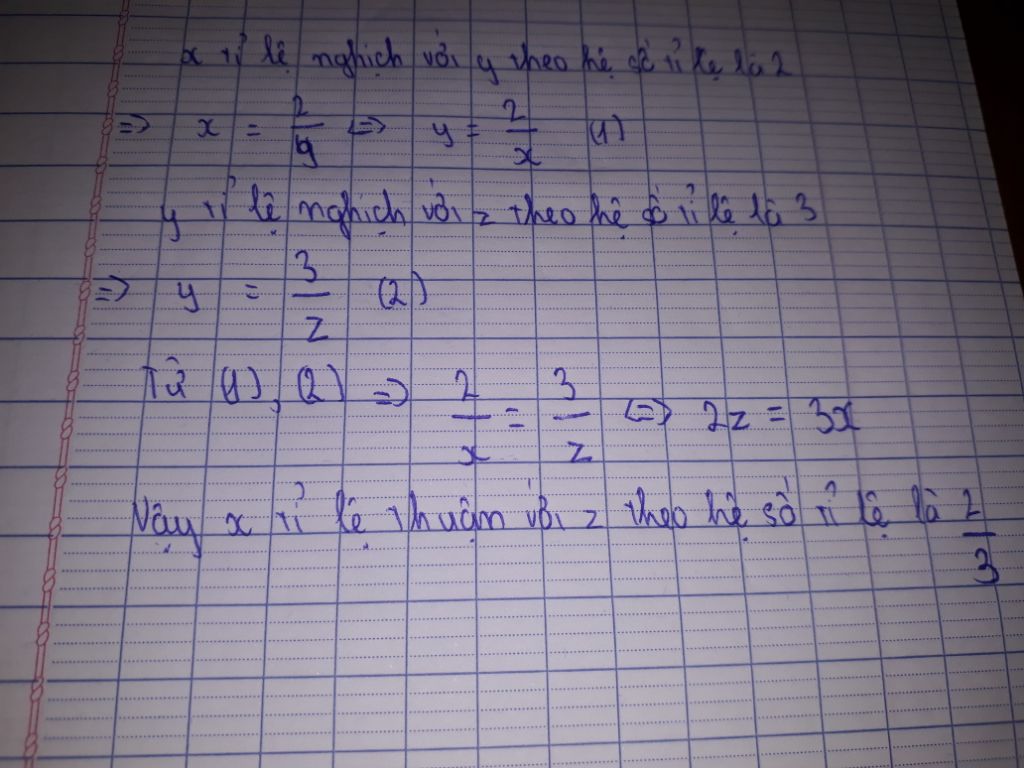 x tỉ lệ nghịch với y theo hệ số tỉ lệ là 2
=> x = 2/y <=> y = 2/x (1)
y tỉ lệ nghịch với z theo hệ số tỉ lệ là 3
=> y = 3/z (2)
Từ (1), (2) => 2/x = 3/z <=> 2z = 3x
Vậy x tỉ lệ thuận với z theo hệ số tỉ lệ là 2/3